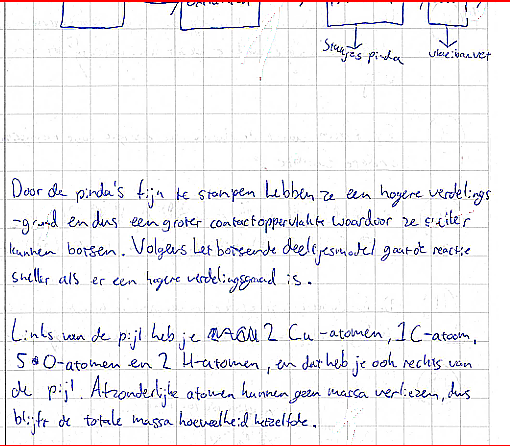 Stukjes pinda vloeibaar vet
Door de pinda's fijn te stampen hebben ze een hogere verdelings
-graad en dus een groter contactoppervlakte waardoor ze sneller
kunnen botsen. Volgens het botsende deeltjesmodel gaat de reactie
sneller als er een hogere verdelingsgraad is.
Links van de pijl heb je 2 Cu-atomen, 1 C-atoom,
5 O-atomen en 2 H-atomen, en dat heb je ook rechts van
de pijl. Afzonderlijke atomen kunnen geen massa verliezen, dus
blijft de totale massa hoeveelheid hetzelfde.